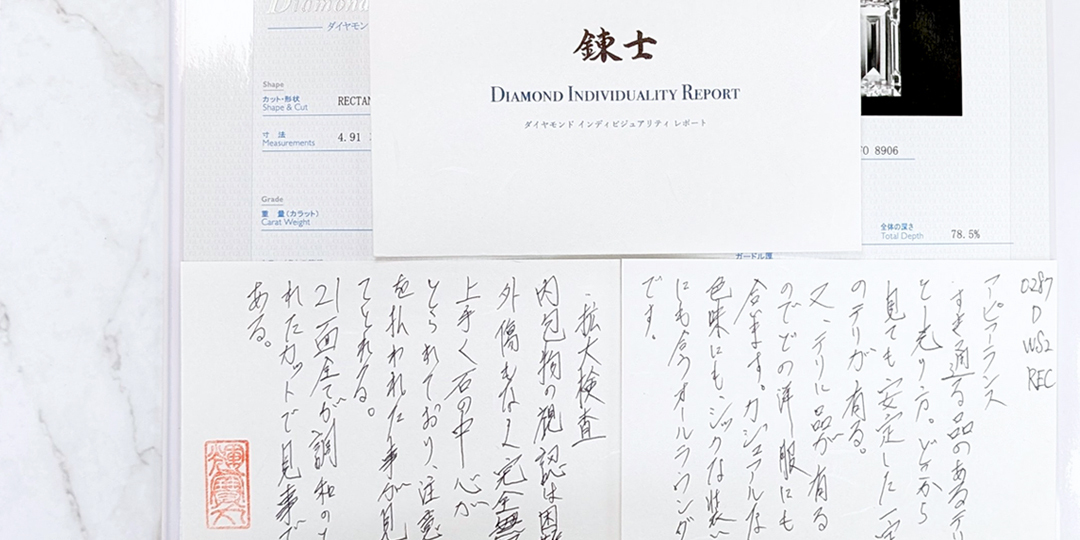 Diamond
ダイヤモン
Shape
カット・形状
Shape & Cut
RECTAN
寸 法
Measurements
4.91
Grade
重 量(カラット)
Carat Weight
錬士
DIAMOND INDIVIDUALITY REPORT
ダイヤモンド インディビジュアリティ レポート
8906
全体の深さ
Total Depth
78.5%
ガードル厚
0287
D
VVS2
REC
アーピアランス
すき通る品のあるテリ
と光り方。どこから
見ても安定した一定
のテリが有る。
又、テリに品が有る
のでどの洋服にも
合います。カジュアルな
色味にも、シックな装い
にも合うオールラウンダー
です。
・拡大検査
内包物の視認は困難
外傷もなく完全無
上手く石の中心が
とられており、注意
を払われた事が見
てとれる。
21面全てが調和のと
れたカットで見事で
ある。